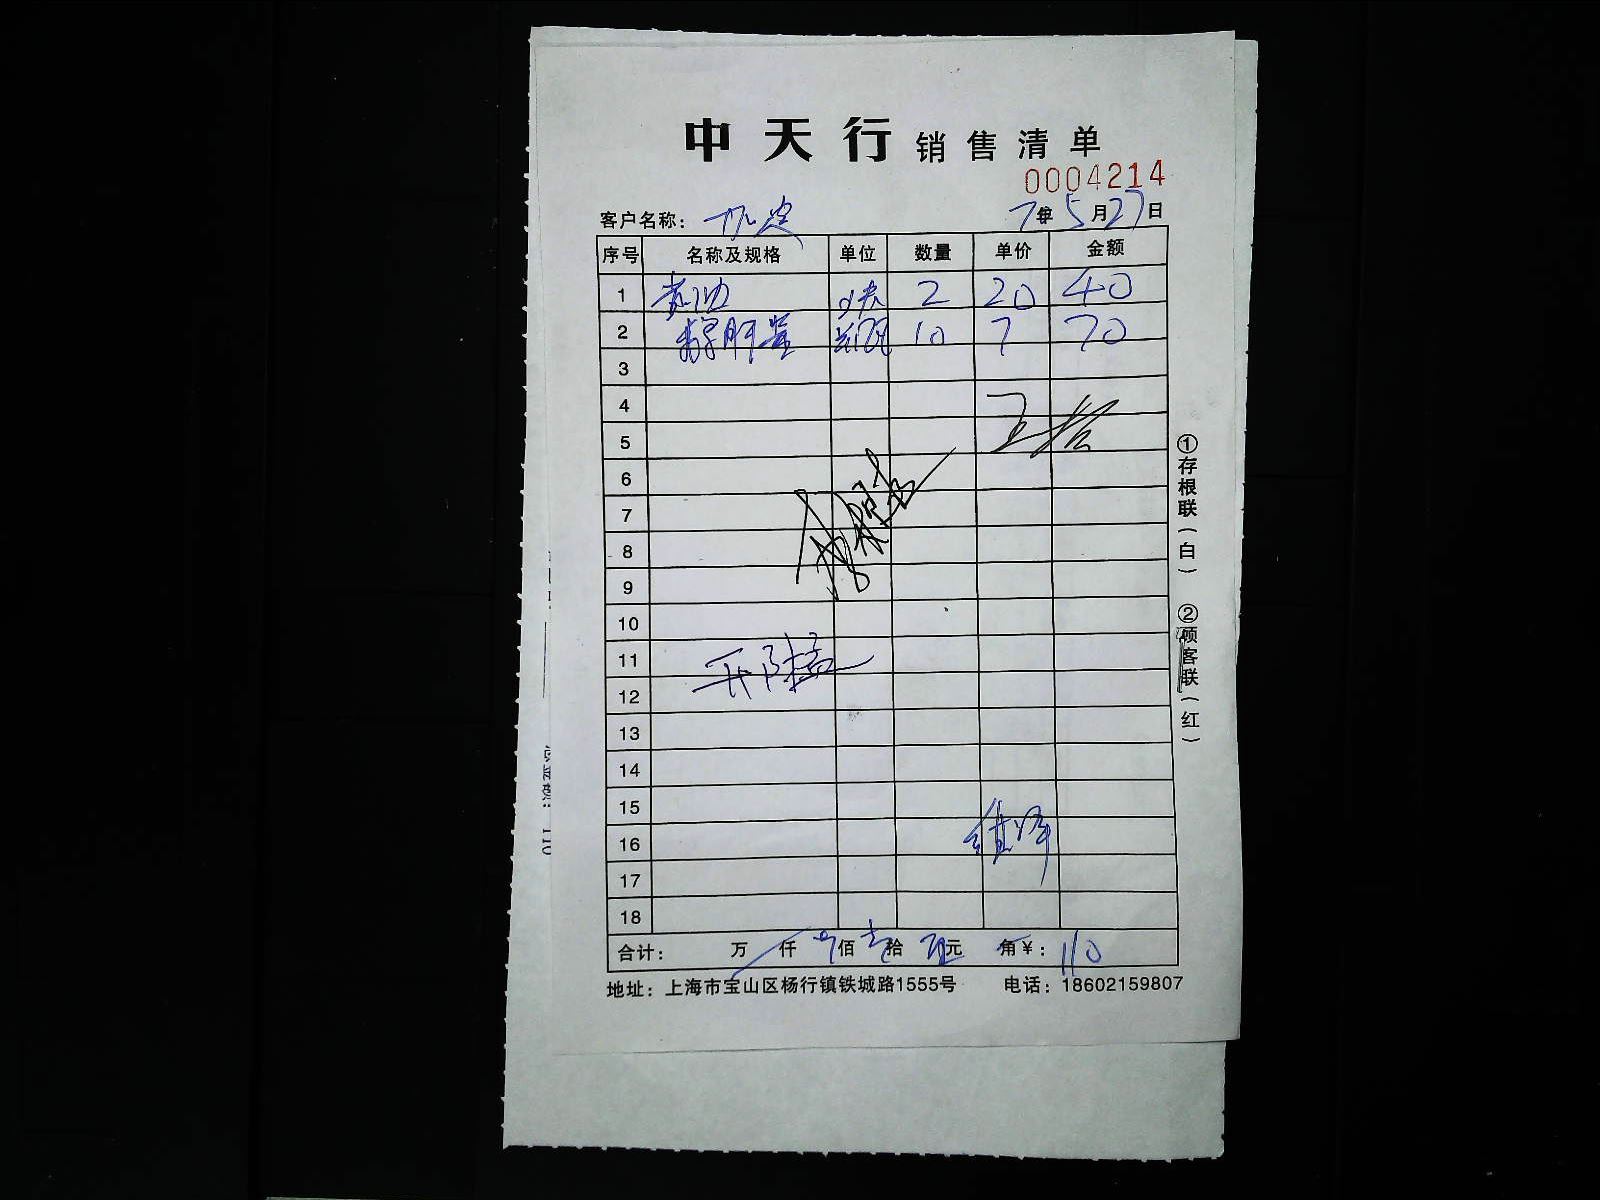 中天行 销售清单
0004214
客户名称：
7年5月27日
序号 名称及规格 单位 数量 单价 金额
1 黄油 2 20 40
2 10 7 70
3
4
5
6
7
8
9
10
11
12
13
14
15
16
17
18
合计： 万 仟 佰 壹拾 元 角￥：110
地址：上海市宝山区杨行镇铁城路1555号 电话：18602159807
①存根联（白） ②顾客联（红）